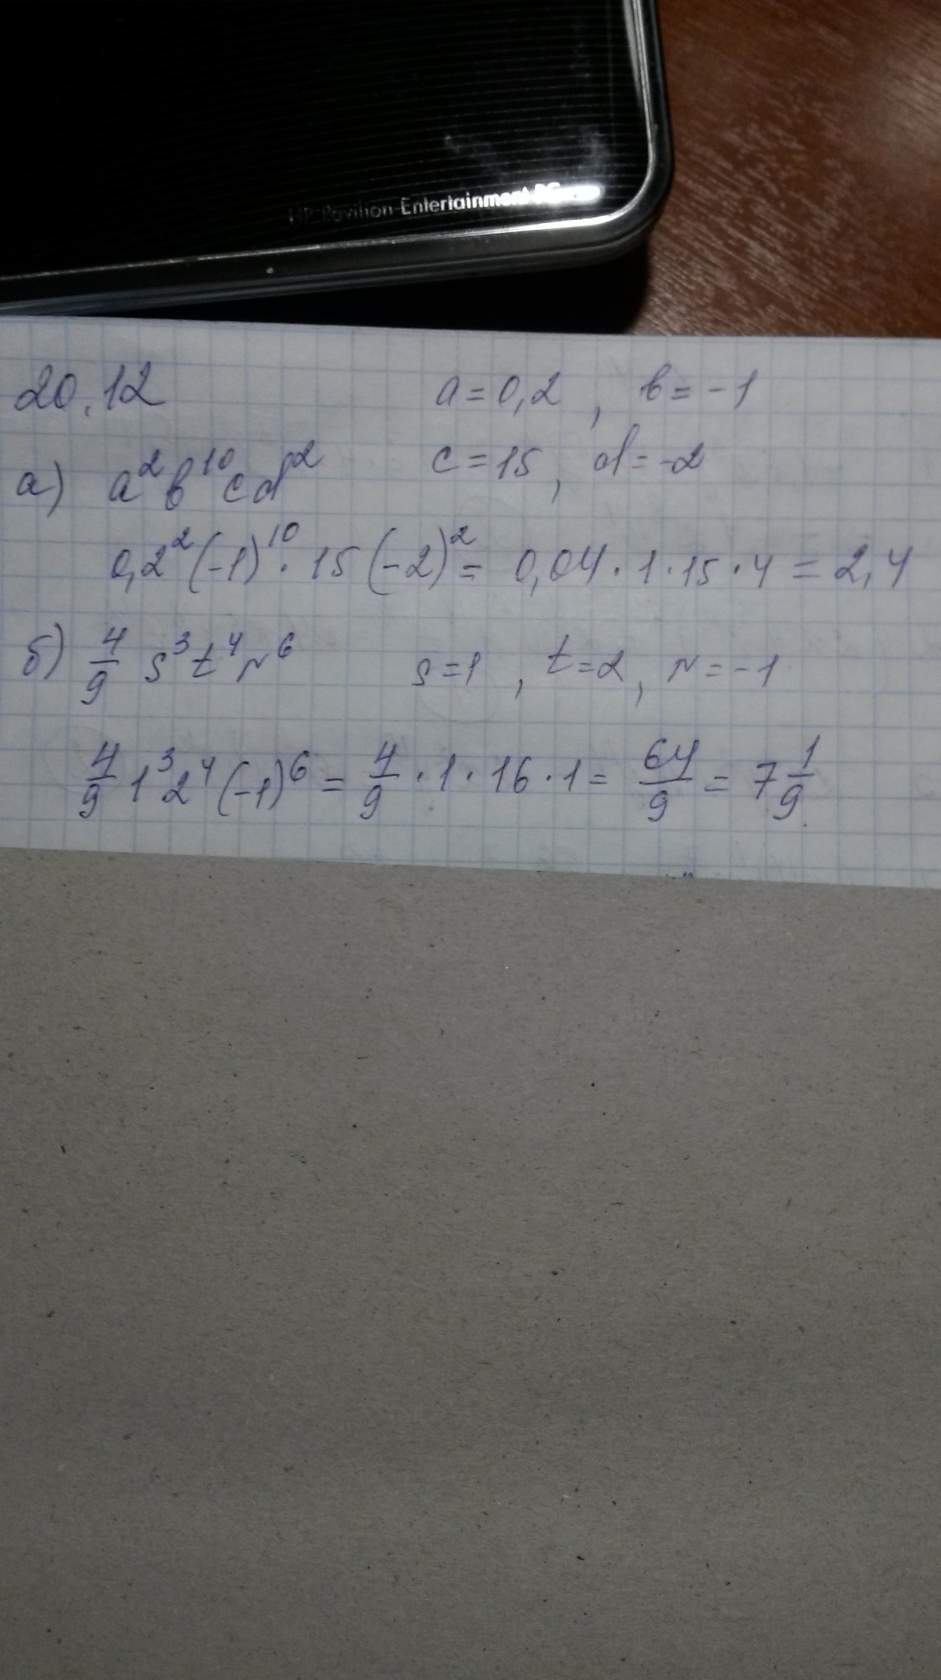 HP Pavilion Entertainment PC
20.12 a = 0,2 , b = -1
а) a²b¹⁰cd² c = 15 , d = -2
0,2²(-1)¹⁰ · 15(-2)² = 0,04 · 1 · 15 · 4 = 2,4
б) 4/9 s³t⁴r⁶ s = 1 , t = 2 , r = -1
4/9 1³2⁴(-1)⁶ = 4/9 · 1 · 16 · 1 = 64/9 = 7 1/9